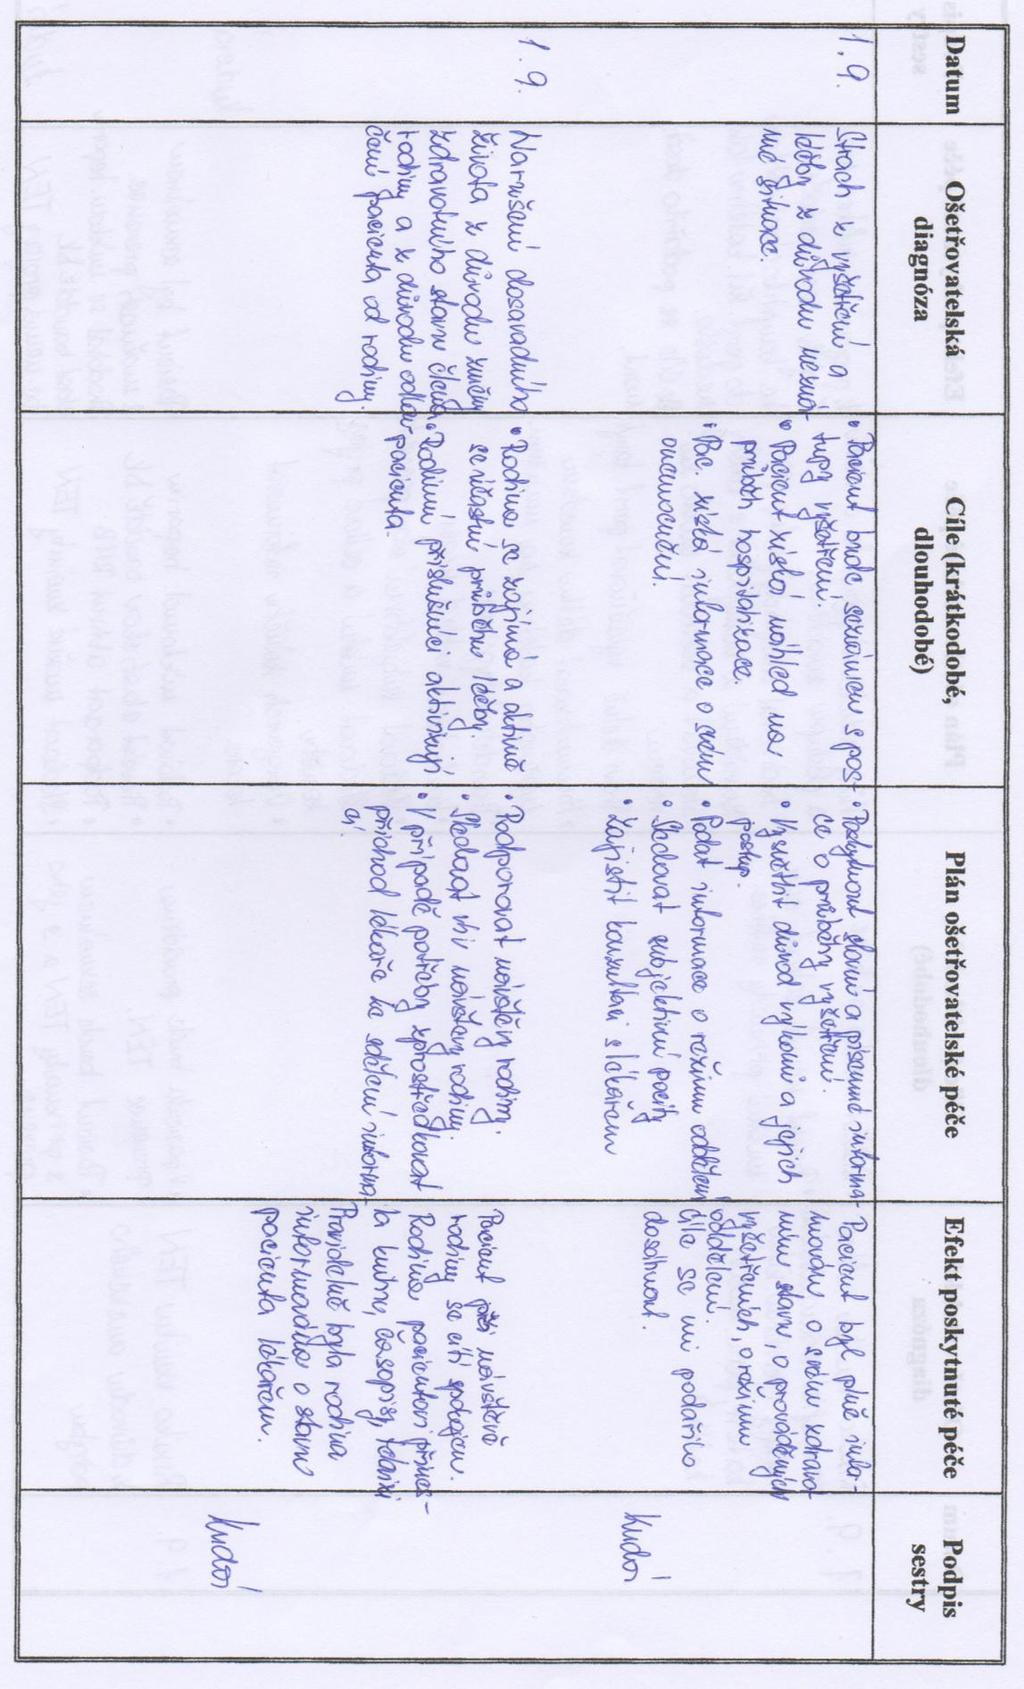 Datum
Ošetřovatelská
diagnóza
Cíle (krátkodobé,
dlouhodobé)
Plán ošetřovatelské péče
Efekt poskytnuté péče
Podpis
sestry
1.9.
Strach z vyšetření a
léčby z důvodu nezná-
mé situace.
• Pacient bude seznámen s pos-
tupy vyšetření.
• Pacient získá náhled na
průběh hospitalizace.
• Pac. získá informace o svém
onemocnění.
• Poskytnout slovní a písemné informa-
ce o průběhy vyšetření.
• Vysvětlit důvod výkonů a jejich
postup.
• Podat informace o režimu oddělení
• Sledovat subjektivní pocity
• Zajistit konzultaci s lékařem
Pacient byl plně infor-
mován o svém zdravot-
ním stavu, o prováděných
vyšetřeních, o režimu
oddělení.
Cíle se mi podařilo
dosáhnout.
1.9.
Narušení dosavadního
života z důvodu změny
zdravotního stavu člena
rodiny a z důvodu odlou-
čení pacienta od rodiny.
• Rodina se zajímá a aktivně
se účastní průběhu léčby.
• Rodinní příslušníci aktivizují
pacienta.
• Podporovat návštěvy rodiny.
• Sledovat vliv návštěvy rodiny.
• V případě potřeby zprostředkovat
příchod lékaře ke sdělení informa-
cí.
Pacient při návštěvě
rodiny se cítí spokojen.
Rodina pacientovi přines-
la knihy, časopisy,
Pravidelně byla rodina
informována o stavu
pacienta lékařem.